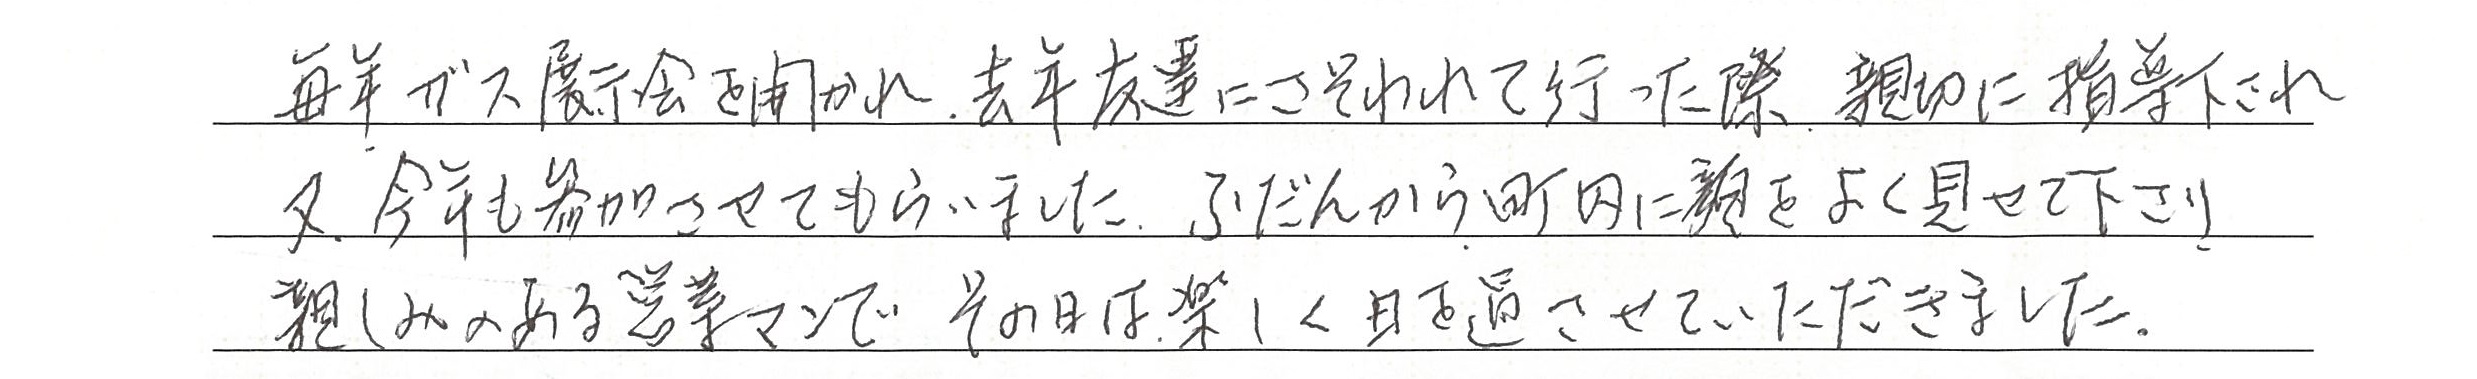 毎年ガス展示会を開かれ、去年友達にさそわれて行った際、親切に指導下され
又、今年も参加させてもらいました。ふだんから町内に顔をよく見せて下さり
親しみのある営業マンで その日は、楽しく日を過させていただきました。